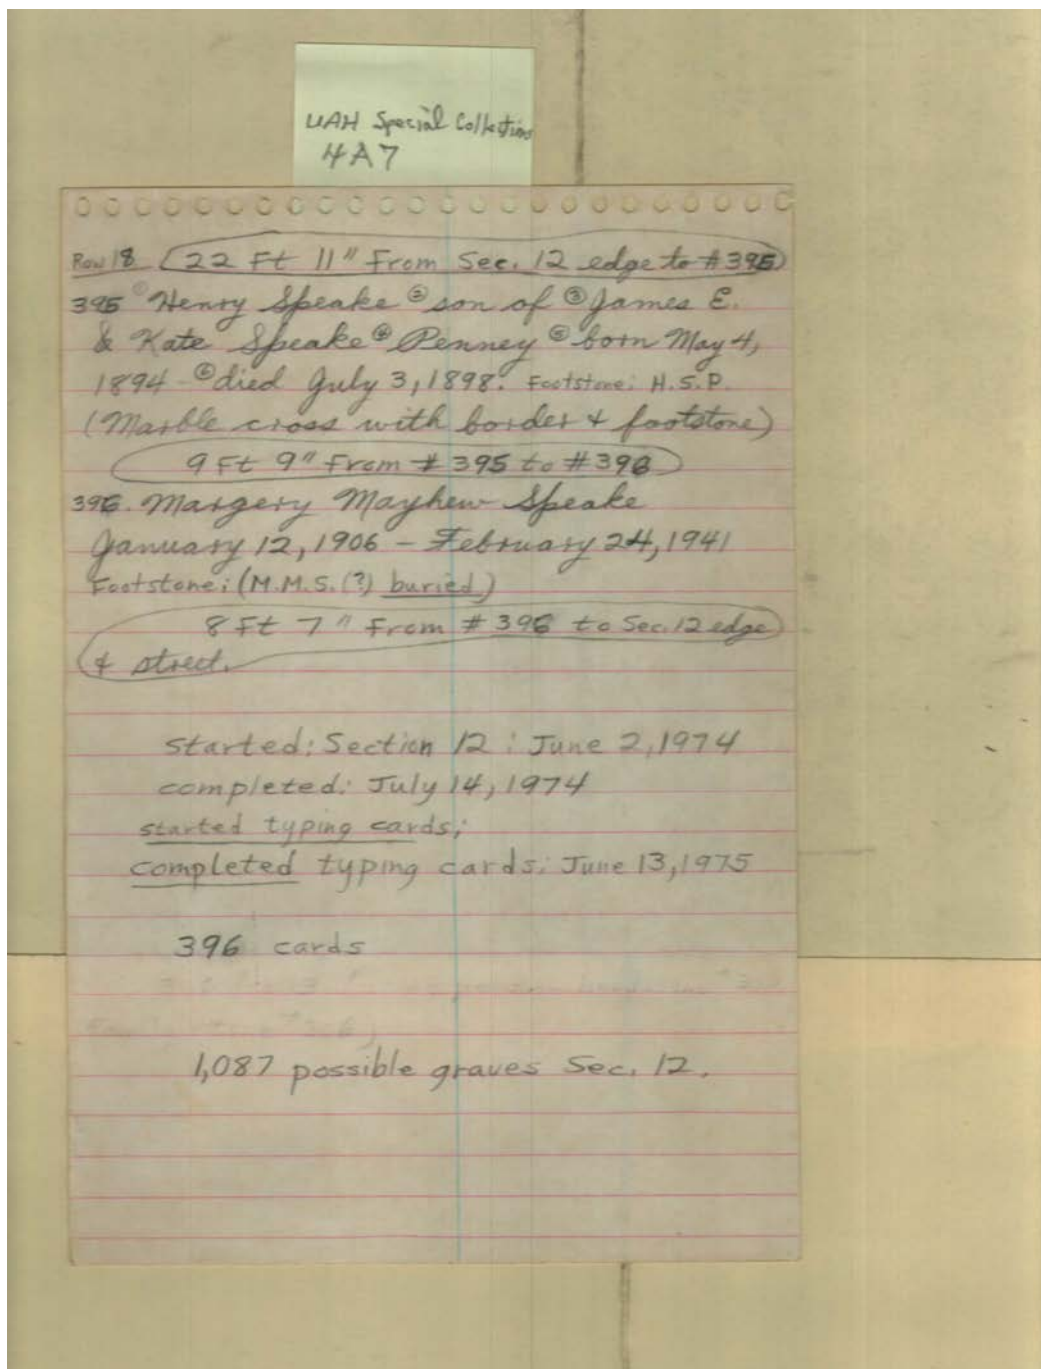 UAH Special Collections
4A7
Row 18 (22 Ft 11" From Sec. 12 edge to #395)
395 ① Henry Speake ② son of ③ James E.
& Kate Speake ④ Penney ⑤ born May 4,
1894 - ⑥ died July 3, 1898. Footstone: H.S.P.
(Marble cross with border & footstone)
9 Ft 9" From #395 to #396
396. Margery Mayhew Speake
January 12, 1906 - February 24, 1941
Footstone: (M.M.S. (?) buried)
8 Ft 7" From #396 to Sec. 12 edge
& street.
started: Section 12: June 2, 1974
completed: July 14, 1974
started typing cards:
completed typing cards: June 13, 1975
396 cards
1,087 possible graves Sec. 12.